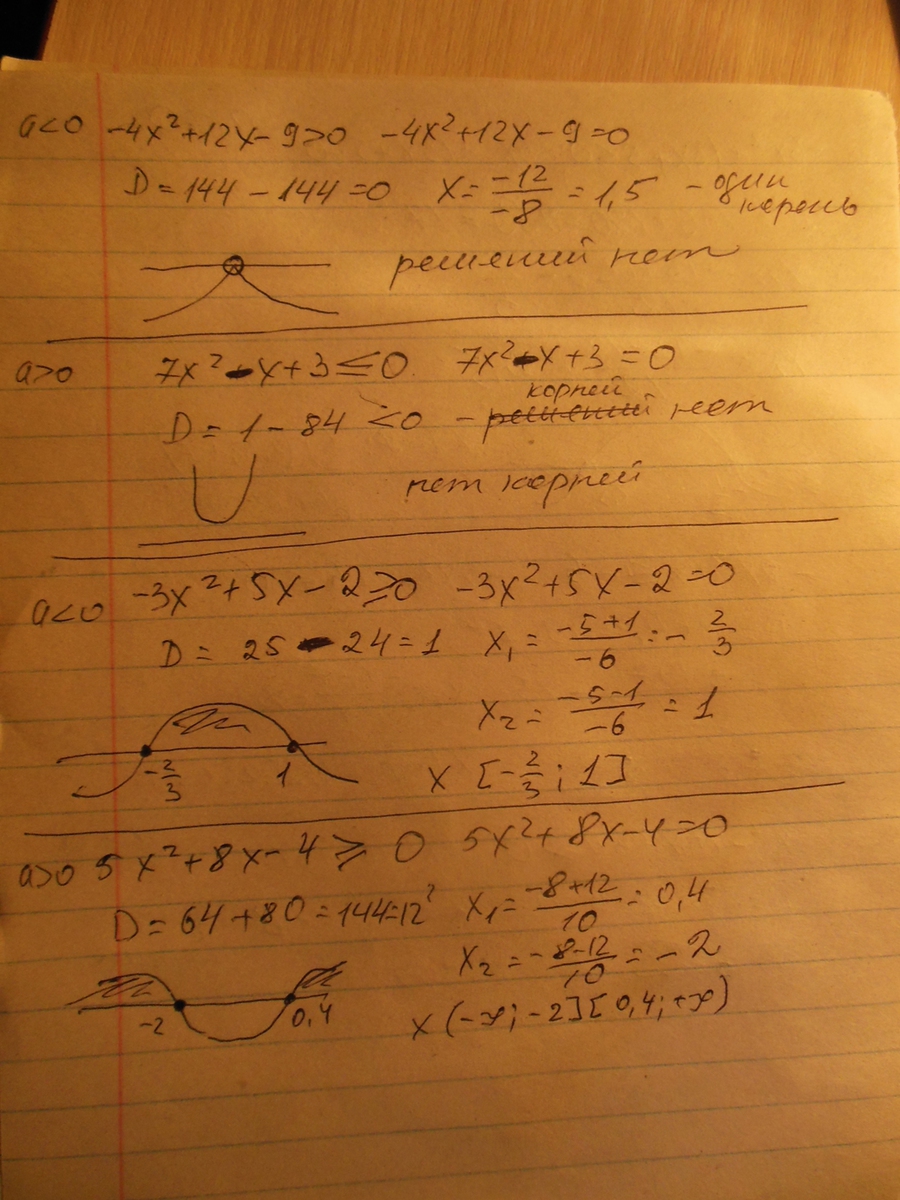 a<0 -4x²+12x-9>0 -4x²+12x-9=0
D=144-144=0 x=-12/-8=1,5 - один корень
решений нет
a>0 7x²-x+3≤0. 7x²-x+3=0
D=1-84<0 - решений корней нет
нет корней
a<0 -3x²+5x-2≥0 -3x²+5x-2=0
D=25-24=1 x₁=-5+1/-6=-2/3
x₂=-5-1/-6=1
-2/3 1 x [-2/3; 1]
a>0 5x²+8x-4≥0 5x²+8x-4=0
D=64+80=144=12² x₁=-8+12/10=0,4
x₂=-8-12/10=-2
-2 0,4 x (-∞; -2][0,4; +∞)